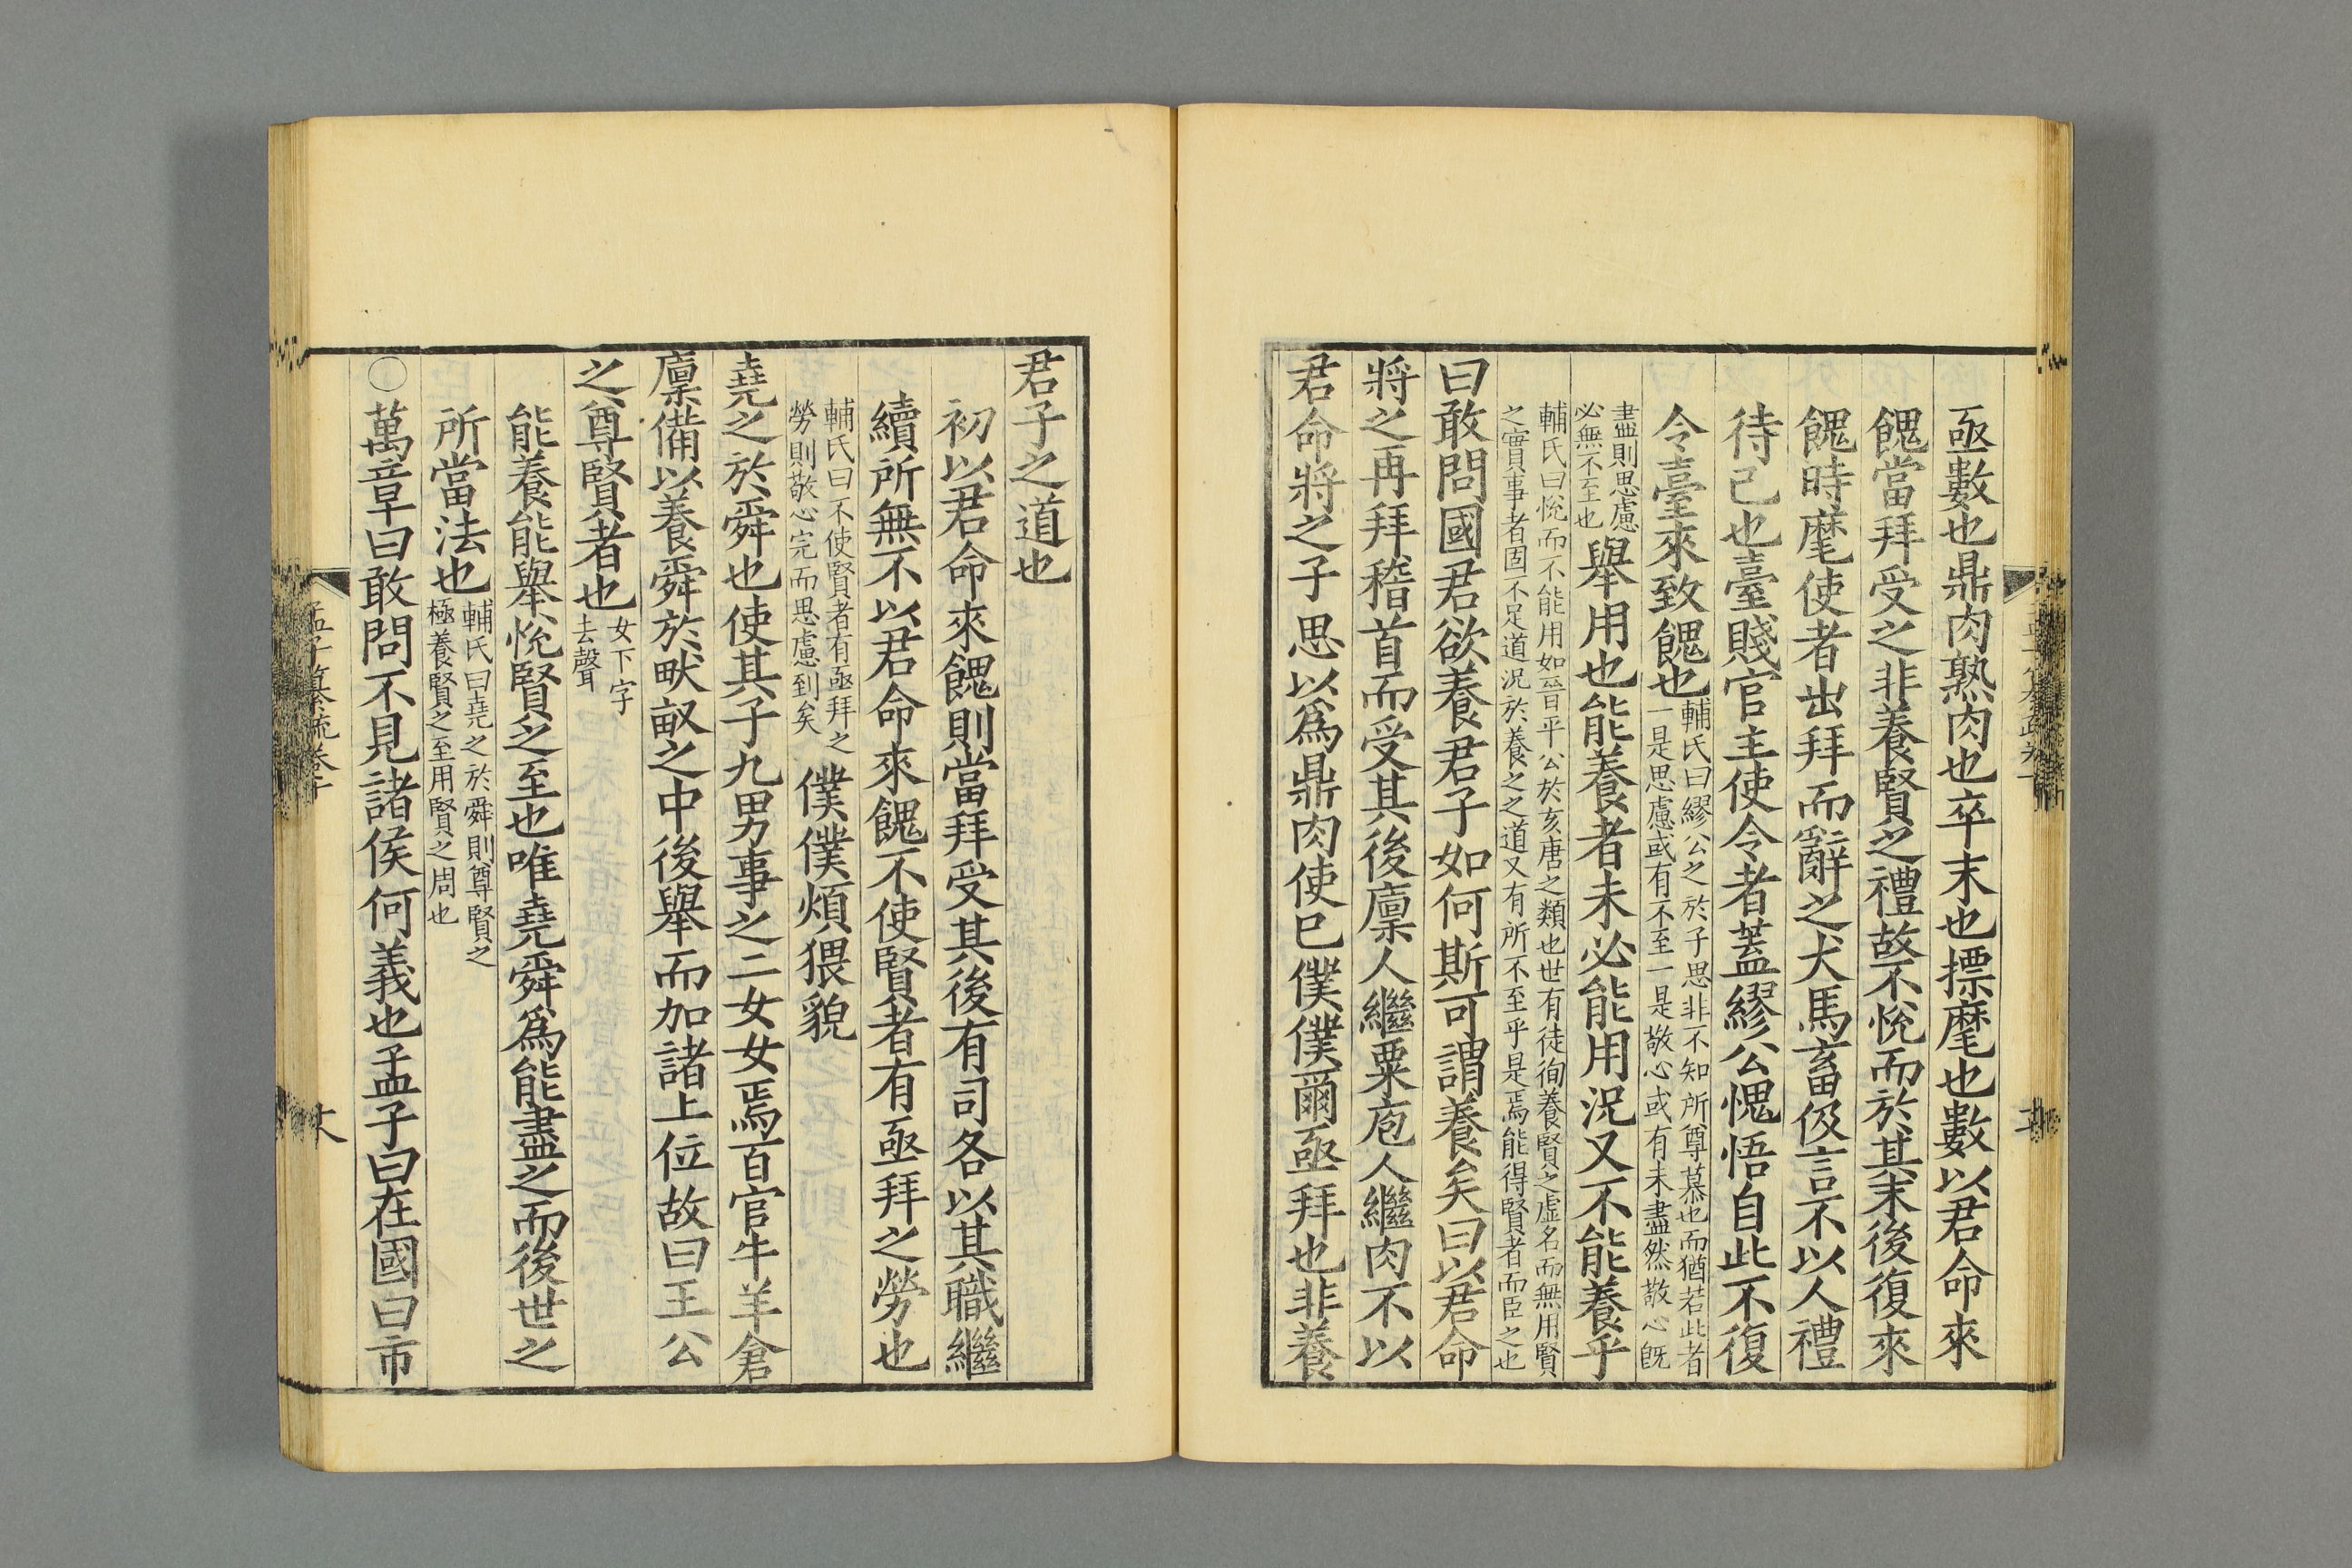 亟數也鼎肉熟肉也卒末也摽麾也數以君命來
餽當拜受之非養賢之禮故不悅而於其末後復來
餽時麾使者出拜而辭之犬馬畜伋言不以人禮
待己也臺賤官主使令者蓋繆公愧悟自此不復
令臺來致餽也
輔氏曰繆公之於子思非不知所尊慕也而猶若此者
一是思慮或有不至一是敬心或有未盡然敬心旣
盡則思慮
必無不至也
舉用也能養者未必能用況又不能養乎
輔氏曰悅而不能用如晉平公於亥唐之類也世有徒徇養賢之虛名而無用賢
之實事者固不足道況於養之之道又有所不至乎是焉能得賢者而臣之也
曰敢問國君欲養君子如何斯可謂養矣曰以君命
將之再拜稽首而受其後廩人繼粟庖人繼肉不以
君命將之子思以爲鼎肉使己僕僕爾亟拜也非養
君子之道也
初以君命來餽則當拜受其後有司各以其職繼
續所無不以君命來餽不使賢者有亟拜之勞也
輔氏曰不使賢者有亟拜之
勞則敬心完而思慮到矣
僕僕煩猥貌
堯之於舜也使其子九男事之二女女焉百官牛羊倉
廩備以養舜於畎畝之中後舉而加諸上位故曰王公
之尊賢者也
女下字
去聲
能養能舉悅賢之至也唯堯舜爲能盡之而後世之
所當法也
輔氏曰堯之於舜則尊賢之
極養賢之至用賢之周也
○萬章曰敢問不見諸侯何義也孟子曰在國曰市
孟子纂疏卷十